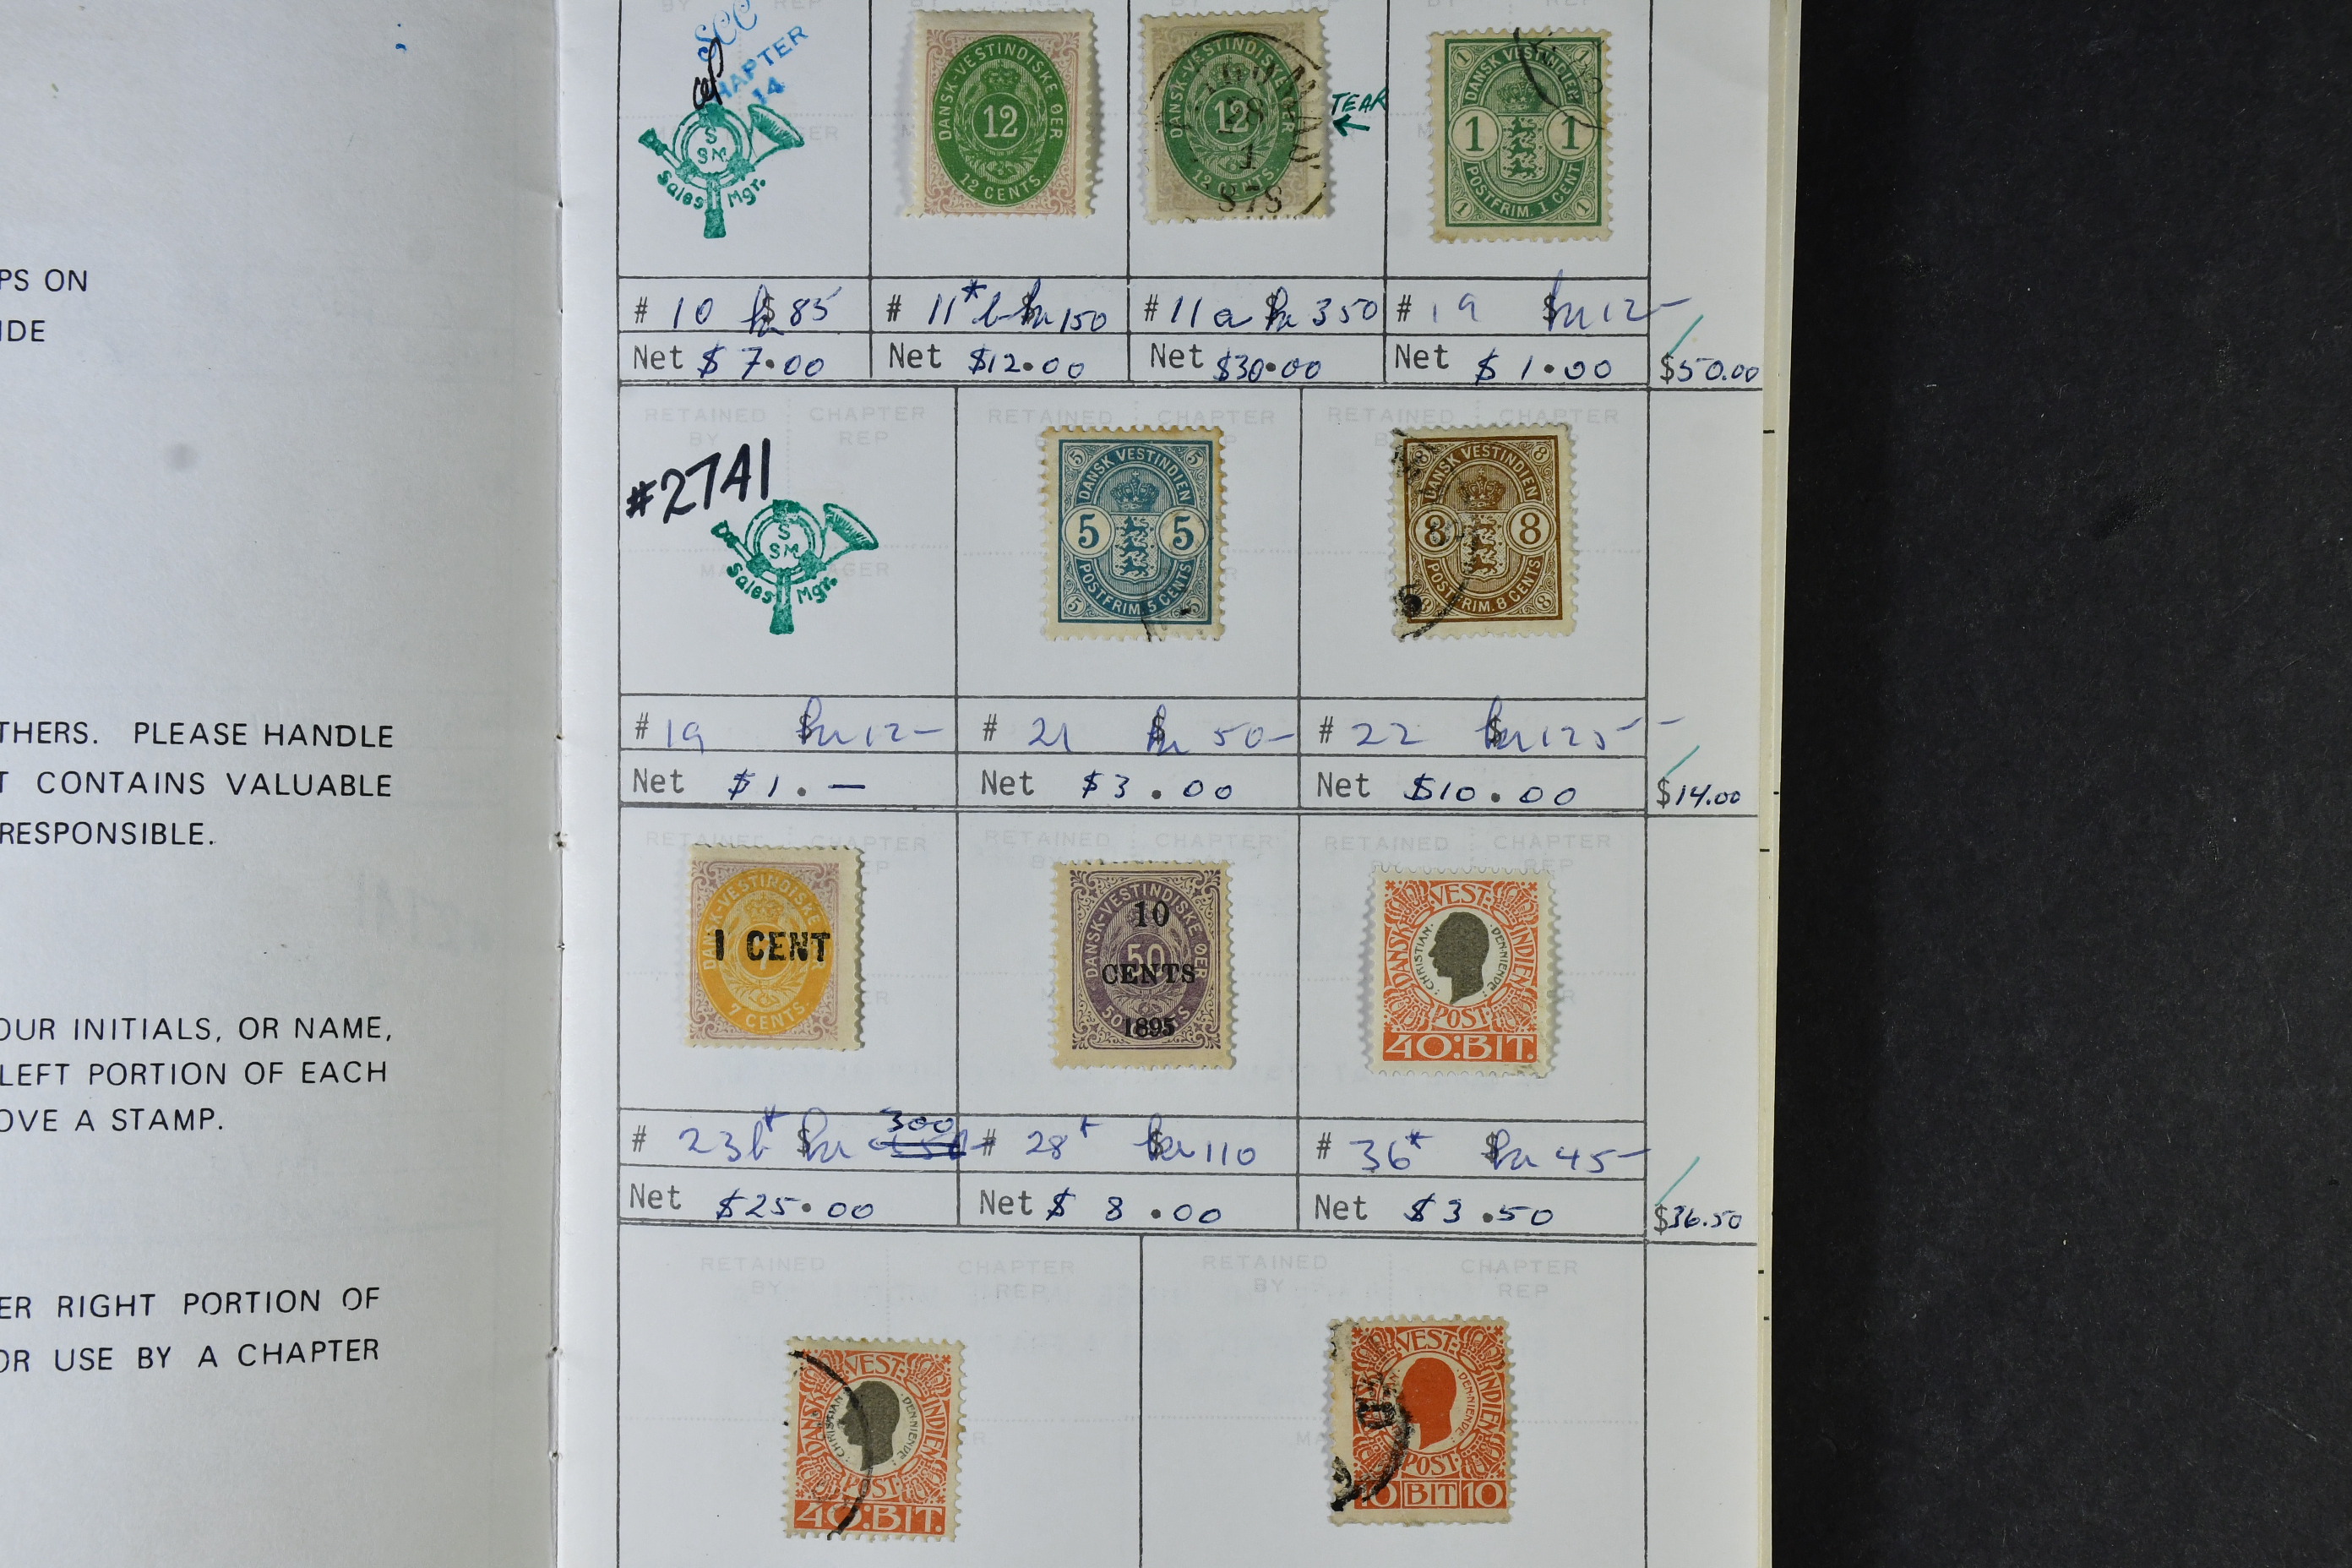 PS ON
IDE
THERS. PLEASE HANDLE
T CONTAINS VALUABLE
RESPONSIBLE.
OUR INITIALS, OR NAME,
LEFT PORTION OF EACH
OVE A STAMP.
ER RIGHT PORTION OF
OR USE BY A CHAPTER
SCC
CHAPTER
14
S
SM
Sales Mgr.
DANSK-VESTINDISKE ØER
12
12 CENTS.
DANSK-VESTINDISKE ØER
12
12 CENTS.
28
1
878
TEAR
DANSK VESTINDIEN
1 1
POSTFRIM. 1 CENT
# 10 $ 85
# 11*b $ 150
# 11a $ 350
# 19 $ 12-
Net $ 7.00
Net $12.00
Net $30.00
Net $ 1.00
$50.00
RETAINED BY CHAPTER REP
RETAINED CHAPTER
RETAINED CHAPTER REP
#2741
S
SM
Sales Mgr.
DANSK VESTINDIEN
5 5
POSTFRIM. 5 CENTS
DANSK VESTINDIEN
8 8
POSTFRIM. 8 CENTS
# 19 $ 12-
# 21 $ 50-
# 22 $ 125-
Net $1.—
Net $3.00
Net $10.00
$14.00
DANSK-VESTINDISKE ØER
1 CENT
7 CENTS.
DANSK-VESTINDISKE ØER
10
50
CENTS
1895
VEST-INDIEN
DANSK
CHRISTIAN. DEN:NIENDE:
POST:
40:BIT.
# 23b* $ 300
# 28* $ 110
# 36* $ 45-
Net $25.00
Net $ 8.00
Net $3.50
$36.50
RETAINED BY CHAPTER REP
RETAINED BY CHAPTER REP
VEST-INDIEN
DANSK
CHRISTIAN. DEN:NIENDE:
POST:
40:BIT.
VEST-INDIEN
DEN:NIENDE:
POST:
10 BIT 10